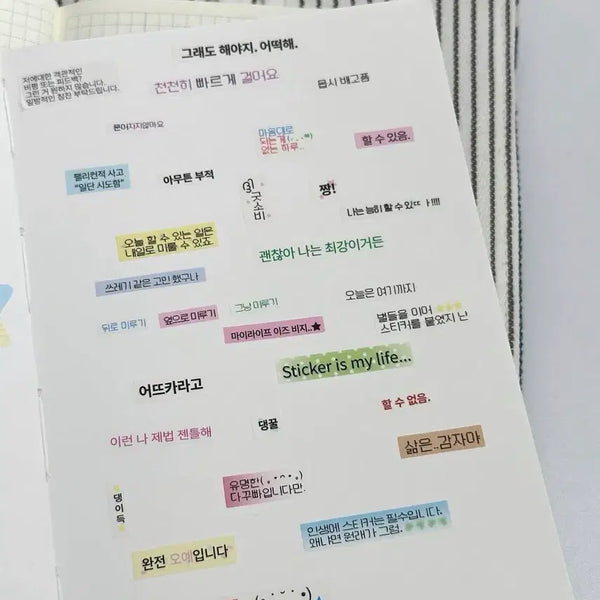 그래도 해야지. 어떡해.
저에대한 객관적인
비평 또는 피드백?
그런 거 원하지 않습니다.
일방적인 칭찬 부탁드립니다.
천천히 빠르게 걸어요
몹시 배고픔
뽄아지지않아요
마음대로
되는게
없는 하루..
할 수 있음.
펠리컨적 사고
"일단 시도함"
아무튼 부적
굿
소
비
짱!
나는 능히 할 수 있다!!!!
오늘 할 수 있는 일은
내일로 미룰 수 있죠
괜찮아 나는 최강이거든
쓰레기 같은 고민 했구나
그냥 미루기
오늘은 여기까지
뒤로 미루기
옆으로 미루기
마이라이프 이즈 비지..★
별들을 이어
스티커를 붙였지 난
Sticker is my life...
어뜨카라고
할 수 없음.
이런 나 제법 젠틀해
댕꿀
삶은..감자야
댕
이
득
유명한
다꾸빠입니다만.
인생에 스티커는 필수입니다.
왜냐면 원래가 그럼.
완전 오예입니다